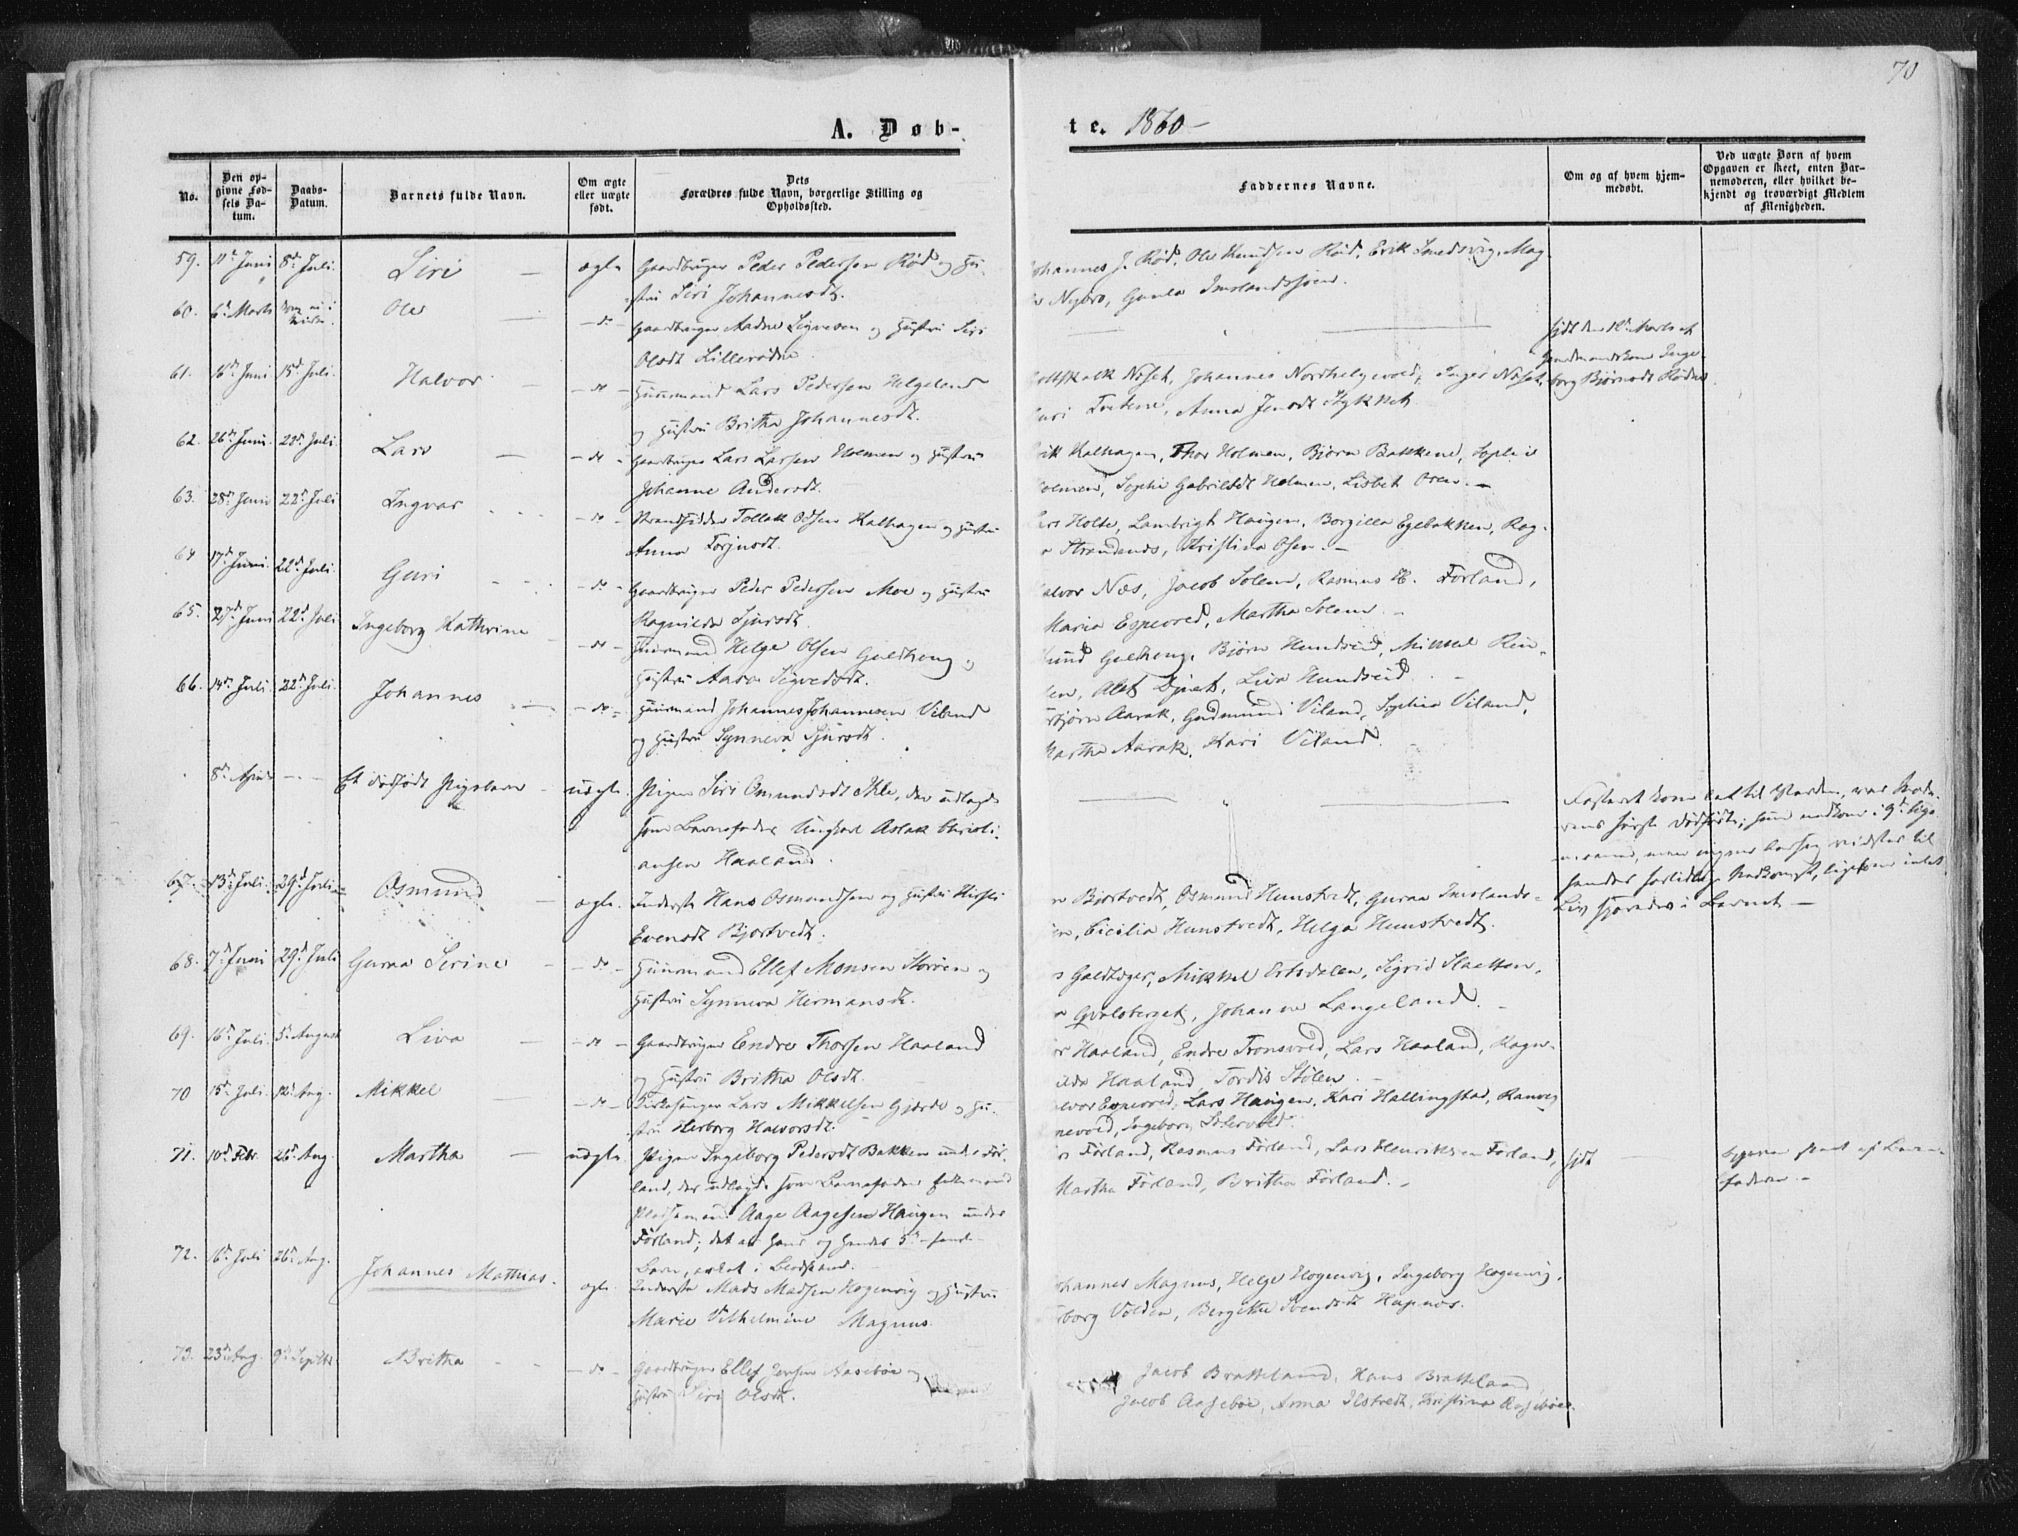 70
A. Døb-
te. 1860-
No.
Den op-
givne Fød-
sels Da-
tum.
Daabs-
Datum.
Barnets fulde Navn.
Om ægte
eller uægte
født.
Dets
Forældres fulde Navn, borgerlige Stilling og
Opholdssted.
Faddernes Navne.
Om og af hvem hjem-
medøbt.
Ved uægte Børn af hvem
Opgaven er skeet, enten Bar-
nemoderen, eller hvilket be-
kjendt og troværdigt Medlem
af Menigheden.
59. 11te Juni 8de Juli. Siri - ægte Gaardbruger Peder Pedersen Rød og Hu-
stru Siri Johannesdt.
ohannes J. Rød, Ole Knudsen Rød, Erik Smedsvig, Mag-
Nybro, Gunla Imslandssjoen.
60. 6te Marts Ole - do - Gaardbruger Aadne Sigvesen og Hustru Siri
Olsdt Lillerødne.
hjdt den 10de Marts af
Gaardmandskone Inge-
borg Bjørnsdt Rødne.
61. 16de Juni 15de Juli. Halvor - do - Huusmand Lars Pedersen Helgeland
og Hustru Britha Johannesdt.
ottskalk Næset, Johannes Nordhelgevold, Inger Næset,
uri Tveterne, Anna Jensdt Stykket.
62. 26de Juni. 22de Juli Lars - do - Gaardbruger Lars Larsen Holmen og Hustru
Johanne Andersdt.
rik Kalhagen, Thor Holmen, Bjørn Bakkene, Sophie
olmen, Sophie Gabrielsdt Holmen, Lisbet Osen. -
63. 28de Juni 22de Juli Ingvar - do - Strandsidder Tollak Olsen Kalhagen og Hustru
Anna Torjusdt.
ars Holte, Lambrigt Haugen, Borgilla Egebakken, Rag-
a Strandenes, Kristina Osen. -
64 17de Juni. 22de Juli. Guri - do - Gaardbruger Peder Pedersen Moe og Hustru
Ragnilda Sjursdt.
alvor Næs, Jacob Solem, Rasmus H. Førland,
Maria Espevred, Martha Solem. -
65. 27de Juni 22de Juli Ingeborg Kathrine - do - Huusmand Helge Olsen Guldheug og
Hustru Aasa Sigvedsdt.
mund Guldheug, Bjørn Hundseid, Mikkel Ren-
len, Alet Djuet, Liva Hundseid. -
66. 14de Juli. 22de Juli. Johannes - do - Huusmand Johannes Johannesen Viland
og Hustru Synneva Sjursdt.
rbjørn Aarak, Gudmund Viland, Sophia Viland,
Martha Aarak, Kari Viland.
8de April - - Et dødfødt Pigebarn - uægte. Pigen Siri Osmundsdt Øhle, der udlagde
som Barnefader Ungkarl Aslak Christi-
ansen Haaland.
Fosteret kom
første dødfødte;
Liv sporedes i Barnet -
67. 13de Juli. 29de Juli Osmund - ægte. Inderste Hans Osmundsen og Hustru Kirsti
Evensdt Bjortvedt.
Bjortvedt, Osmund Hunstvedt, Guroa Imslands-
en, Cicilia Hunstvedt, Helga Hunstvedt.
68. 7de Juni 29de Juli Guroa Serine - do - Huusmand Ellef Monsen Støren og
Hustru Synneva Hermansdt.
s Guldteger, Mikkel Ortsdalen, Sigrid Slaetten,
a Qvalsberget, Johanne Langeland. -
69. 16de Juli. 5te August Liva - do - Gaardbruger Endre Thorsen Haaland
og Hustru Britha Olsdt.
or Haaland, Endre Tronsvold, Lars Haaland, Ragn-
ilda Haaland, Tordis Stølen. -
70 15de Juli. 12te Aug. Mikkel - do - Kirkesanger Lars Mikkelsen Gjerde og Hu-
stru Herborg Halvorsdt.
alvor Espevred, Lars Haugen, Kari Hallingstad, Ranveig
nevold, Ingeborg Sætervold.
71. 10de Febr. 26de Aug. Martha - uægte. Pigen Ingeborg Pedersdt Bakken under Før-
land, der udlagde som Barnefader
Pladsmand Aage Aagesen Haugen under
Førland; det er hans og hendes 5te
Barn, avlet i Blodskam.
s Førland, Rasmus Førland, Lars Henriksen Førland,
Martha Førland, Britha Førland. -
hjdt -
Opgaven skeet af Barne-
faderen -
72. 16de Juli 26de Aug. Johannes Mathias. ægte. Inderste Mads Madsen Hogenvig og Hustru
Marie Vilhelmine Magnus.
ohannes Magnus, Helge Hogenvig, Ingeborg Hogenvig,
rborg Volden, Bergitha Svendsdt Hapnæs.
73. 23de Aug. 9de Septbr. Britha - do - Gaardbruger Ellef Jensen Aasebøe og
Hustru Siri Olsdt.
Jacob Bratteland, Hans Bratteland,
Jacob Aasebøe, Anna Ilstvedt, Kristina Aasebøe.